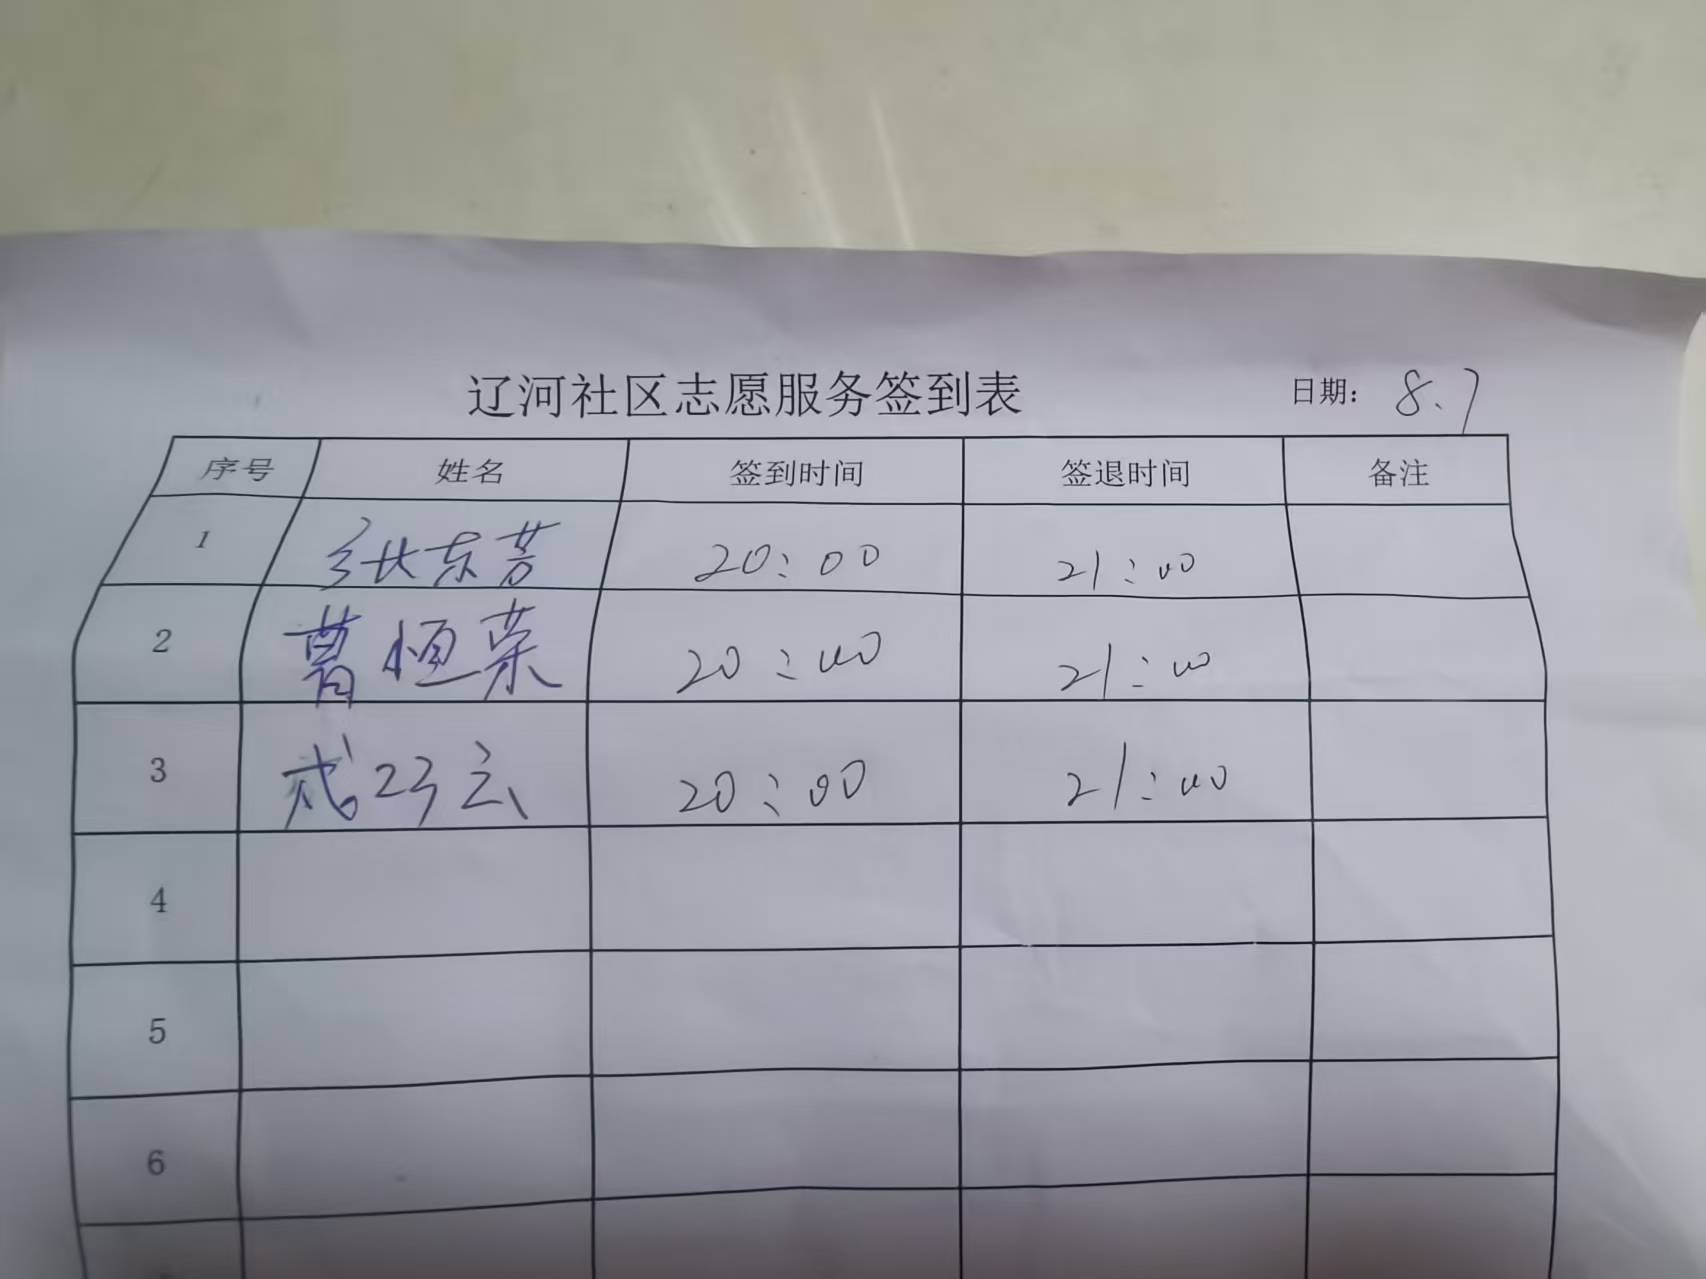 辽河社区志愿服务签到表 日期: 8.7
序号 姓名 签到时间 签退时间 备注
1 张东芳 20:00 21:00
2 葛恒荣 20:00 21:00
3 20:00 21:00
4
5
6